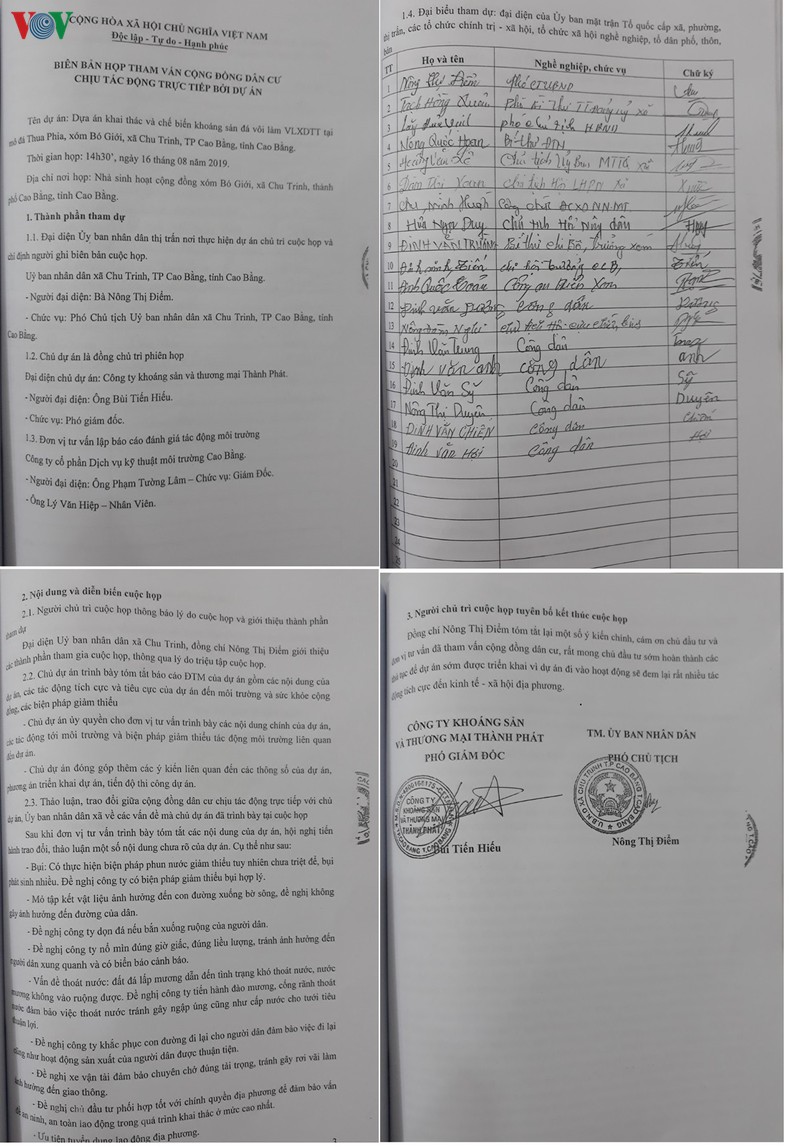 VOV
CỘNG HÒA XÃ HỘI CHỦ NGHĨA VIỆT NAM
Độc lập - Tự do - Hạnh phúc
BIÊN BẢN HỌP THAM VẤN CỘNG ĐỒNG DÂN CƯ
CHỊU TÁC ĐỘNG TRỰC TIẾP BỞI DỰ ÁN
Tên dự án: Dựa án khai thác và chế biến khoáng sản đá vôi làm VLXDTT tại
mỏ đá Thua Phia, xóm Bó Giới, xã Chu Trinh, TP Cao Bằng, tỉnh Cao Bằng.
Thời gian họp: 14h30', ngày 16 tháng 08 năm 2019.
Địa chỉ nơi họp: Nhà sinh hoạt cộng đồng xóm Bó Giới, xã Chu Trinh, thành
phố Cao Bằng, tỉnh Cao Bằng.
1. Thành phần tham dự
1.1. Đại diện Uỷ ban nhân dân thị trấn nơi thực hiện dự án chủ trì cuộc họp và
chỉ định người ghi biên bản cuộc họp.
Uỷ ban nhân dân xã Chu Trinh, TP Cao Bằng, tỉnh Cao Bằng.
- Người đại diện: Bà Nông Thị Điềm.
- Chức vụ: Phó Chủ tịch Uỷ ban nhân dân xã Chu Trinh, TP Cao Bằng, tỉnh
Cao Bằng.
1.2. Chủ dự án là đồng chủ trì phiên họp
Đại diện chủ dự án: Công ty khoáng sản và thương mại Thành Phát.
- Người đại diện: Ông Bùi Tiến Hiếu.
- Chức vụ: Phó giám đốc.
1.3. Đơn vị tư vấn lập báo cáo đánh giá tác động môi trường
Công ty cổ phần Dịch vụ kỹ thuật môi trường Cao Bằng.
- Người đại diện: Ông Phạm Tường Lâm – Chức vụ: Giám Đốc.
- Ông Lý Văn Hiệp – Nhân Viên.
1.4. Đại biểu tham dự: đại diện của Ủy ban mặt trận Tổ quốc cấp xã, phường,
thị trấn, các tổ chức chính trị - xã hội, tổ chức xã hội nghề nghiệp, tổ dân phố, thôn,
bản
TT Họ và tên Nghề nghiệp, chức vụ Chữ ký
1 Nông Thị Điềm Phó CTUBND
2
3
4 Nông Quốc Hoan Bí thư ĐTN
5 Chủ tịch Uỷ Ban MTTQ xã
6
7
8 Hứa Ngọc Duy Chủ tịch Hội Nông dân
9 ĐINH VĂN TRƯỜNG Bí thư chi bộ, trưởng xóm
10
11 Công an viên xóm
12 Đinh Văn Công dân
13
14 Đinh Văn Trung Công dân
15 Đinh văn anh công dân anh
16 Đinh Văn Sỹ Công dân Sỹ
17 Nông Thị Duyên Công dân Duyên
18 ĐINH VĂN CHIẾN Công dân
19 Đinh Văn Hội Công dân Hội
20
21
22
23
24
25
2. Nội dung và diễn biến cuộc họp
2.1. Người chủ trì cuộc họp thông báo lý do cuộc họp và giới thiệu thành phần
tham dự
Đại diện Uỷ ban nhân dân xã Chu Trinh, đồng chí Nông Thị Điềm giới thiệu
các thành phần tham gia cuộc họp, thông qua lý do triệu tập cuộc họp.
2.2. Chủ dự án trình bày tóm tắt báo cáo ĐTM của dự án gồm các nội dung của
dự án, các tác động tích cực và tiêu cực của dự án đến môi trường và sức khỏe cộng
đồng, các biện pháp giảm thiểu
- Chủ dự án ủy quyền cho đơn vị tư vấn trình bày các nội dung chính của dự án,
các tác động tới môi trường và biện pháp giảm thiểu tác động môi trường liên quan
đến dự án.
- Chủ dự án đóng góp thêm các ý kiến liên quan đến các thông số của dự án,
phương án triển khai dự án, tiến độ thi công dự án.
2.3. Thảo luận, trao đổi giữa cộng đồng dân cư chịu tác động trực tiếp với chủ
dự án, Ủy ban nhân dân xã về các vấn đề mà chủ dự án đã trình bày tại cuộc họp
Sau khi đơn vị tư vấn trình bày tóm tắt các nội dung của dự án, hội nghị tiến
hành trao đổi, thảo luận một số nội dung chưa rõ của dự án. Cụ thể như sau:
- Bụi: Có thực hiện biện pháp phun nước giảm thiểu tuy nhiên chưa triệt để, bụi
phát sinh nhiều. Đề nghị công ty có biện pháp giảm thiểu bụi hợp lý.
- Mỏ tập kết vật liệu ảnh hưởng đến con đường xuống bờ sông, đề nghị không
gây ảnh hưởng đến đường của dân.
- Đề nghị công ty dọn đá nếu bắn xuống ruộng của người dân.
- Đề nghị công ty nổ mìn đúng giờ giấc, đúng liều lượng, tránh ảnh hưởng đến
người dân xung quanh và có biển báo cảnh báo.
- Vấn đề thoát nước: đất đá lấp mương dẫn đến tình trạng khó thoát nước, nước
mương không vào ruộng được. Đề nghị công ty tiến hành đào mương, cống rãnh thoát
nước đảm bảo việc thoát nước tránh gây ngập úng cũng như cấp nước cho tưới tiêu
thuận lợi.
- Đề nghị công ty khắc phục con đường đi lại cho người dân đảm bảo việc đi lại
cũng như hoạt động sản xuất của người dân được thuận tiện.
- Đề nghị xe vận tải đảm bảo chuyên chở đúng tải trọng, tránh gây rơi vãi làm
ảnh hưởng đến giao thông.
- Đề nghị chủ đầu tư phối hợp tốt với chính quyền địa phương để đảm bảo vấn
đề an ninh, an toàn lao động trong quá trình khai thác ở mức cao nhất.
- Ưu tiên tuyển dụng lao động địa phương.
3. Người chủ trì cuộc họp tuyên bố kết thúc cuộc họp
Đồng chí Nông Thị Điềm tóm tắt lại một số ý kiến chính, cám ơn chủ đầu tư và
đơn vị tư vấn đã tham vấn cộng đồng dân cư, rất mong chủ đầu tư sớm hoàn thành các
thủ tục để dự án sớm được triển khai vì dự án đi vào hoạt động sẽ đem lại rất nhiều tác
động tích cực đến kinh tế - xã hội địa phương.
CÔNG TY KHOÁNG SẢN
VÀ THƯƠNG MẠI THÀNH PHÁT
PHÓ GIÁM ĐỐC
CÔNG TY
KHOÁNG SẢN
VÀ THƯƠNG MẠI
THÀNH PHÁT
Bùi Tiến Hiếu
TM. ỦY BAN NHÂN DÂN
PHÓ CHỦ TỊCH
Nông Thị Điềm